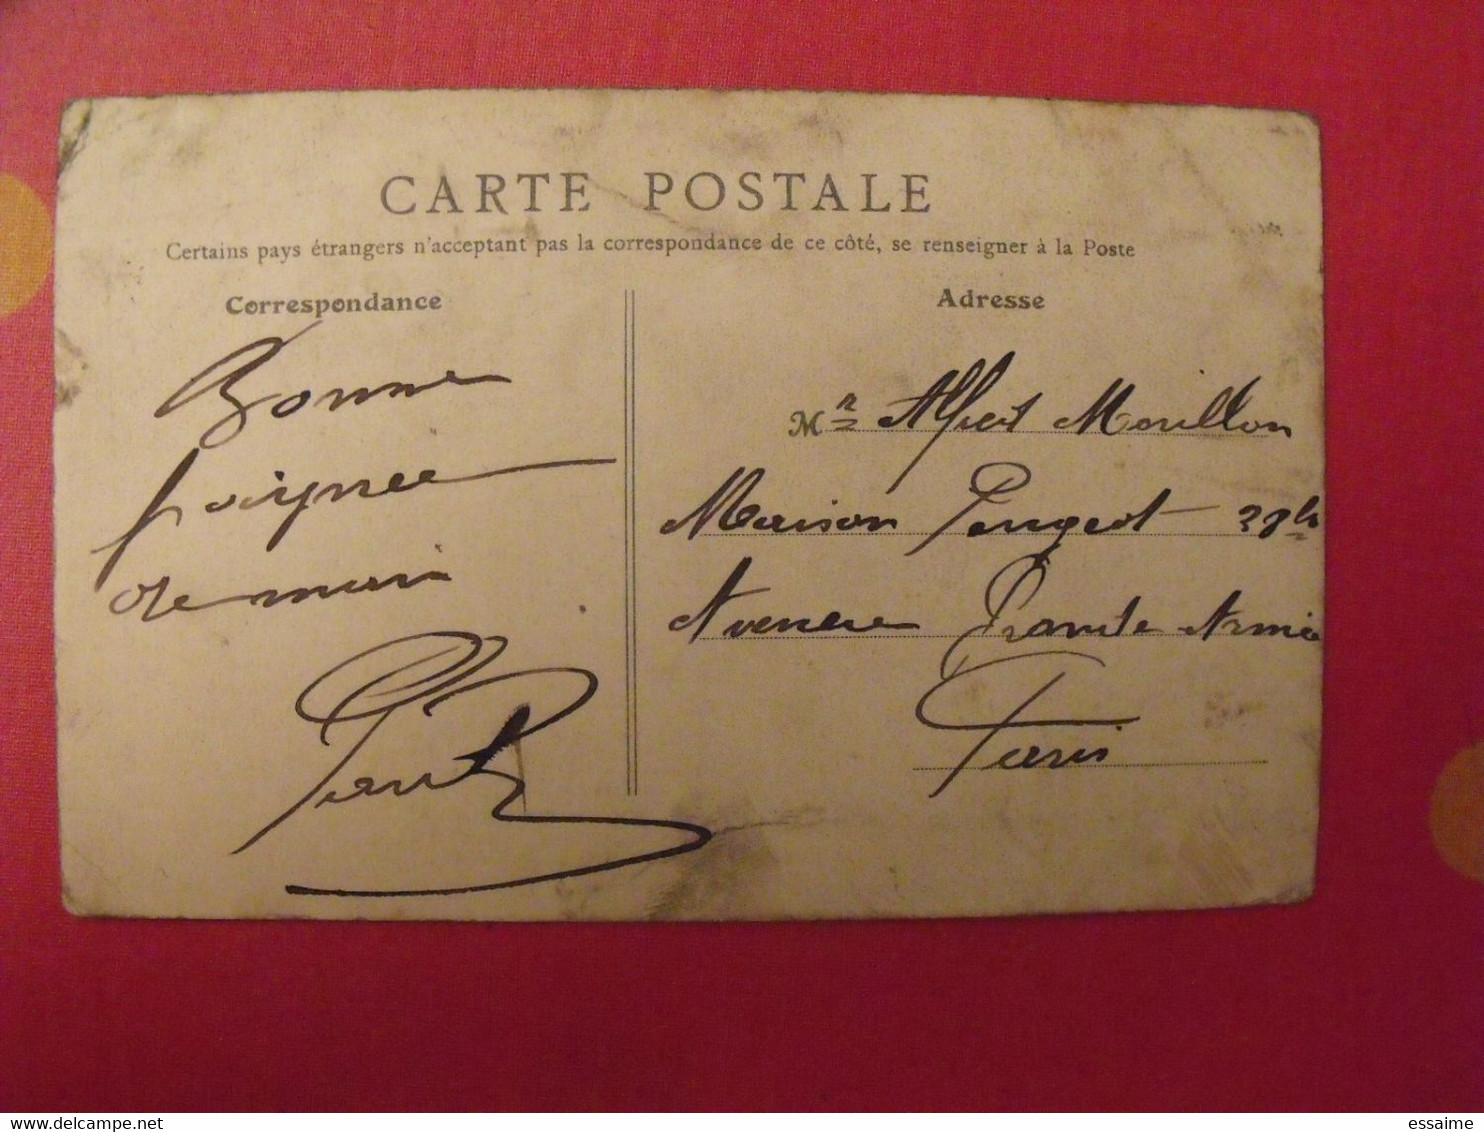 CARTE POSTALE
Certains pays étrangers n'acceptant pas la correspondance de ce côté, se renseigner à la Poste
Correspondance
Bonne
poignee
de main
Paul
Adresse
Mr Alfred Morillon
Maison Peugeot
Avenue Grande Armée
Paris
essaime